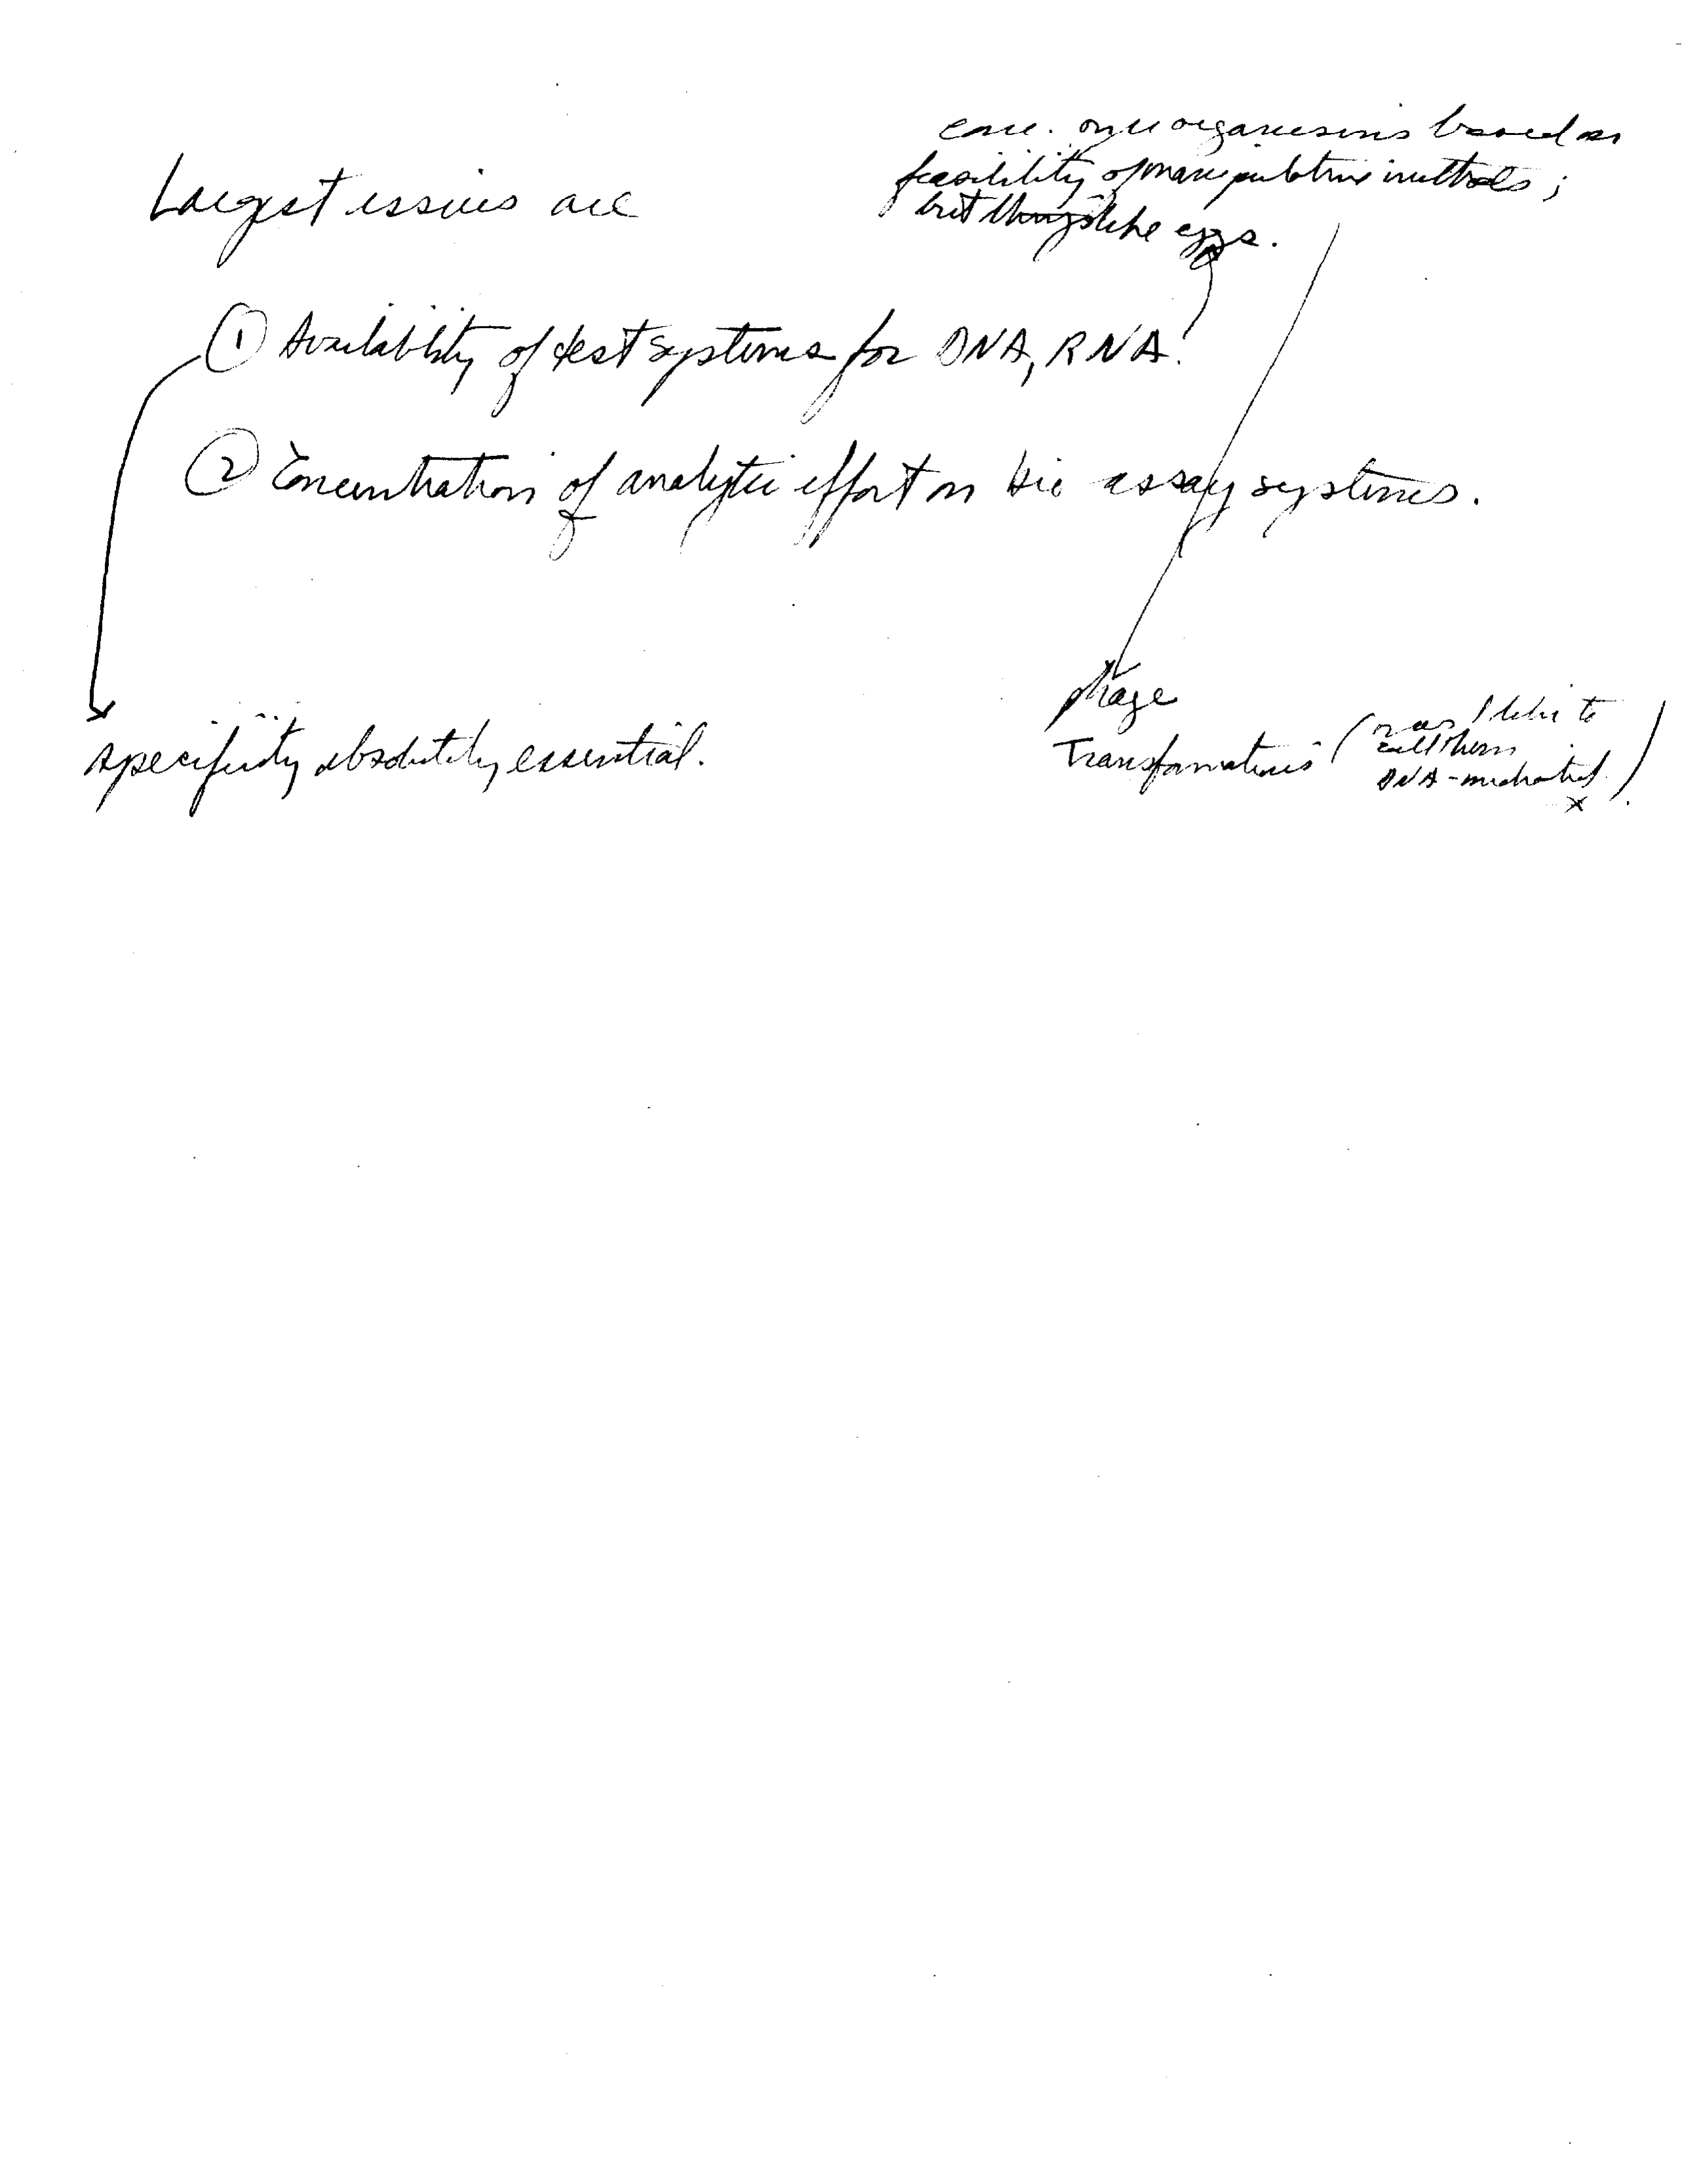 Largest issues are
conc. on µorganisms based on
feasibility of manipulative methods;
but things like eggs.
① Availability of test systems for DNA, RNA!
② Concentration of analytic effort on bio assay systems.
specificity absolutely essential.
phage
Transformations (
I like to
call them
DNA-mediated
x
)